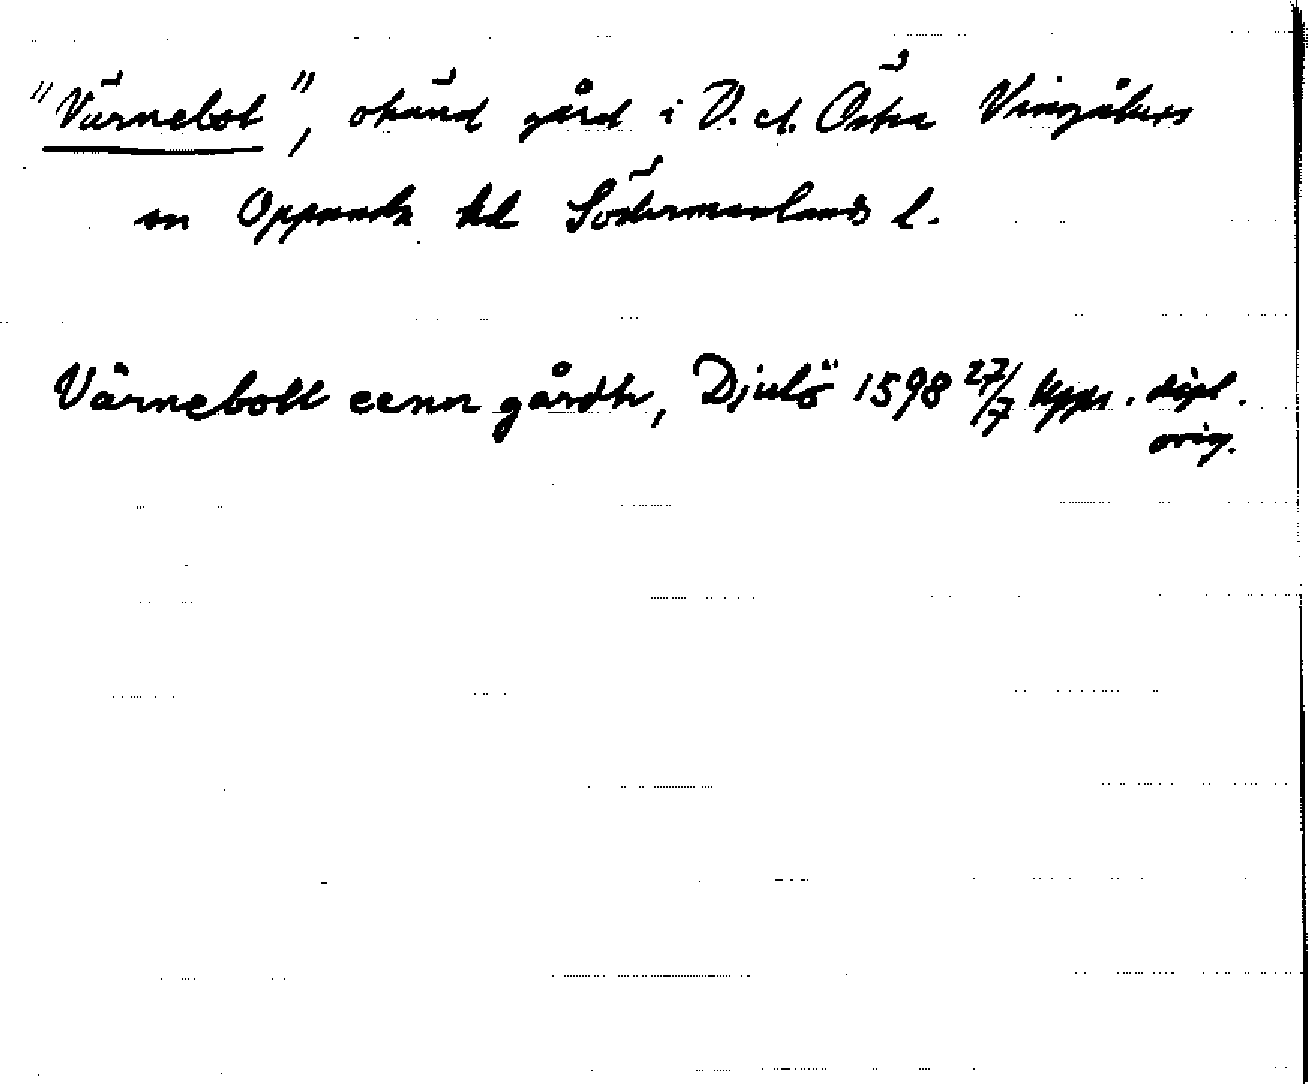 "Värnebot", okänd gård i V. el. Östra Vingåkers
sn Oppunda hd Södermanlands l.
Värnebott eenn gårdh, Djulö 1598 27/7 Upps. dipl.
orig.